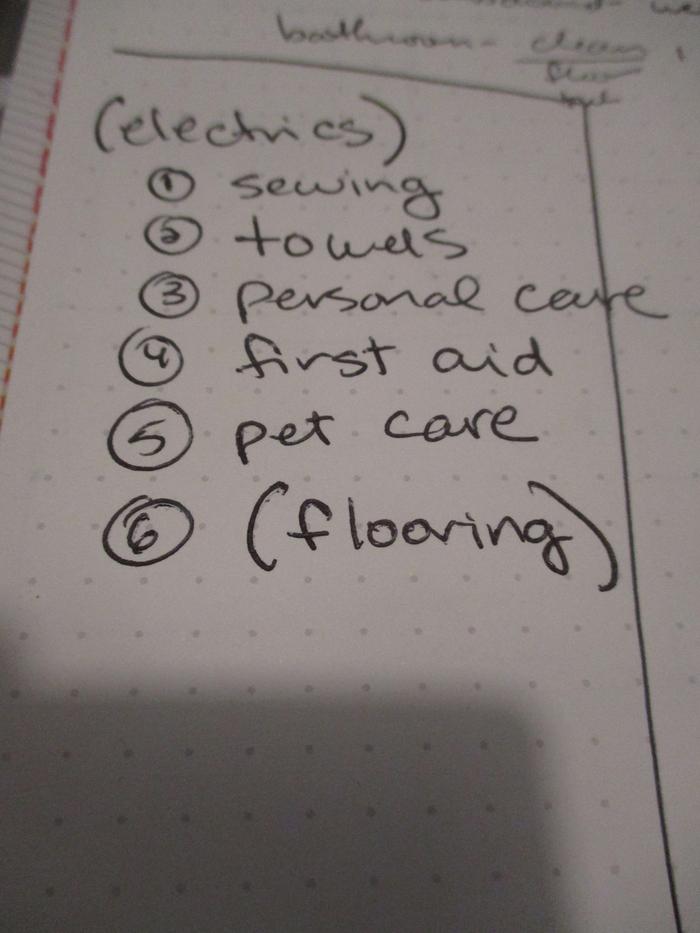 bathroom - clean
(electrics)
① sewing
② towels
③ personal care
④ first aid
⑤ pet care
⑥ (flooring)